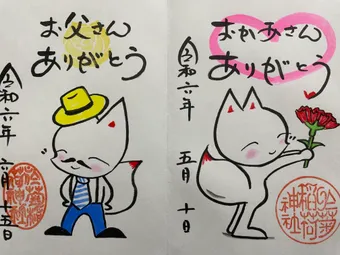 お父さん
ありがとう
令和六年 六月十五日
おかあさん
ありがとう
令和六年 五月十日
稲荷
神社